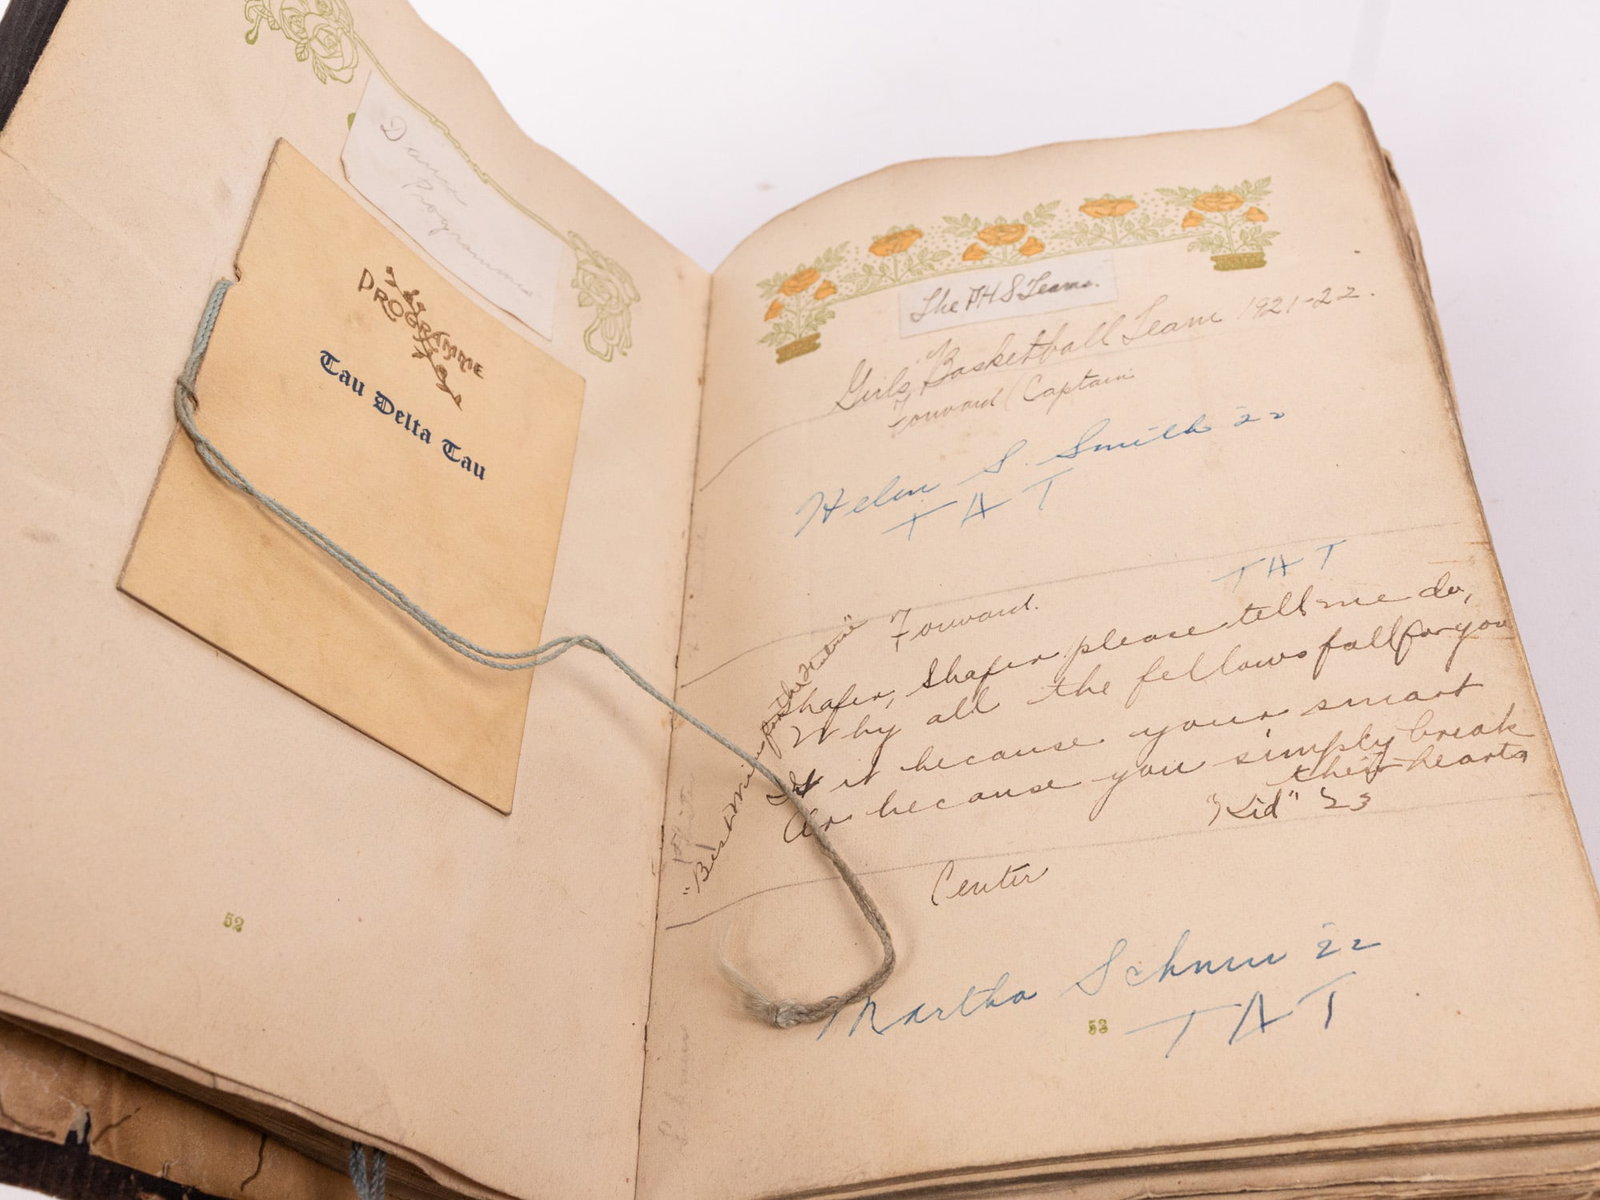 Dance
Programmes
PROGRAMME
Tau Delta Tau
52
The PHS Teams.
Girls' Basketball Team 1921-22.
Forward (Captain
Helen S. Smith '22
T A T
Forward.
T A T
"Best for the Future"
Shafer, Shafer please tell me do,
Why all the fellows fall for you
Is it because your smart
Or because you simply break
their hearts
"Kid" '23
Center
Martha '22
53
T A T